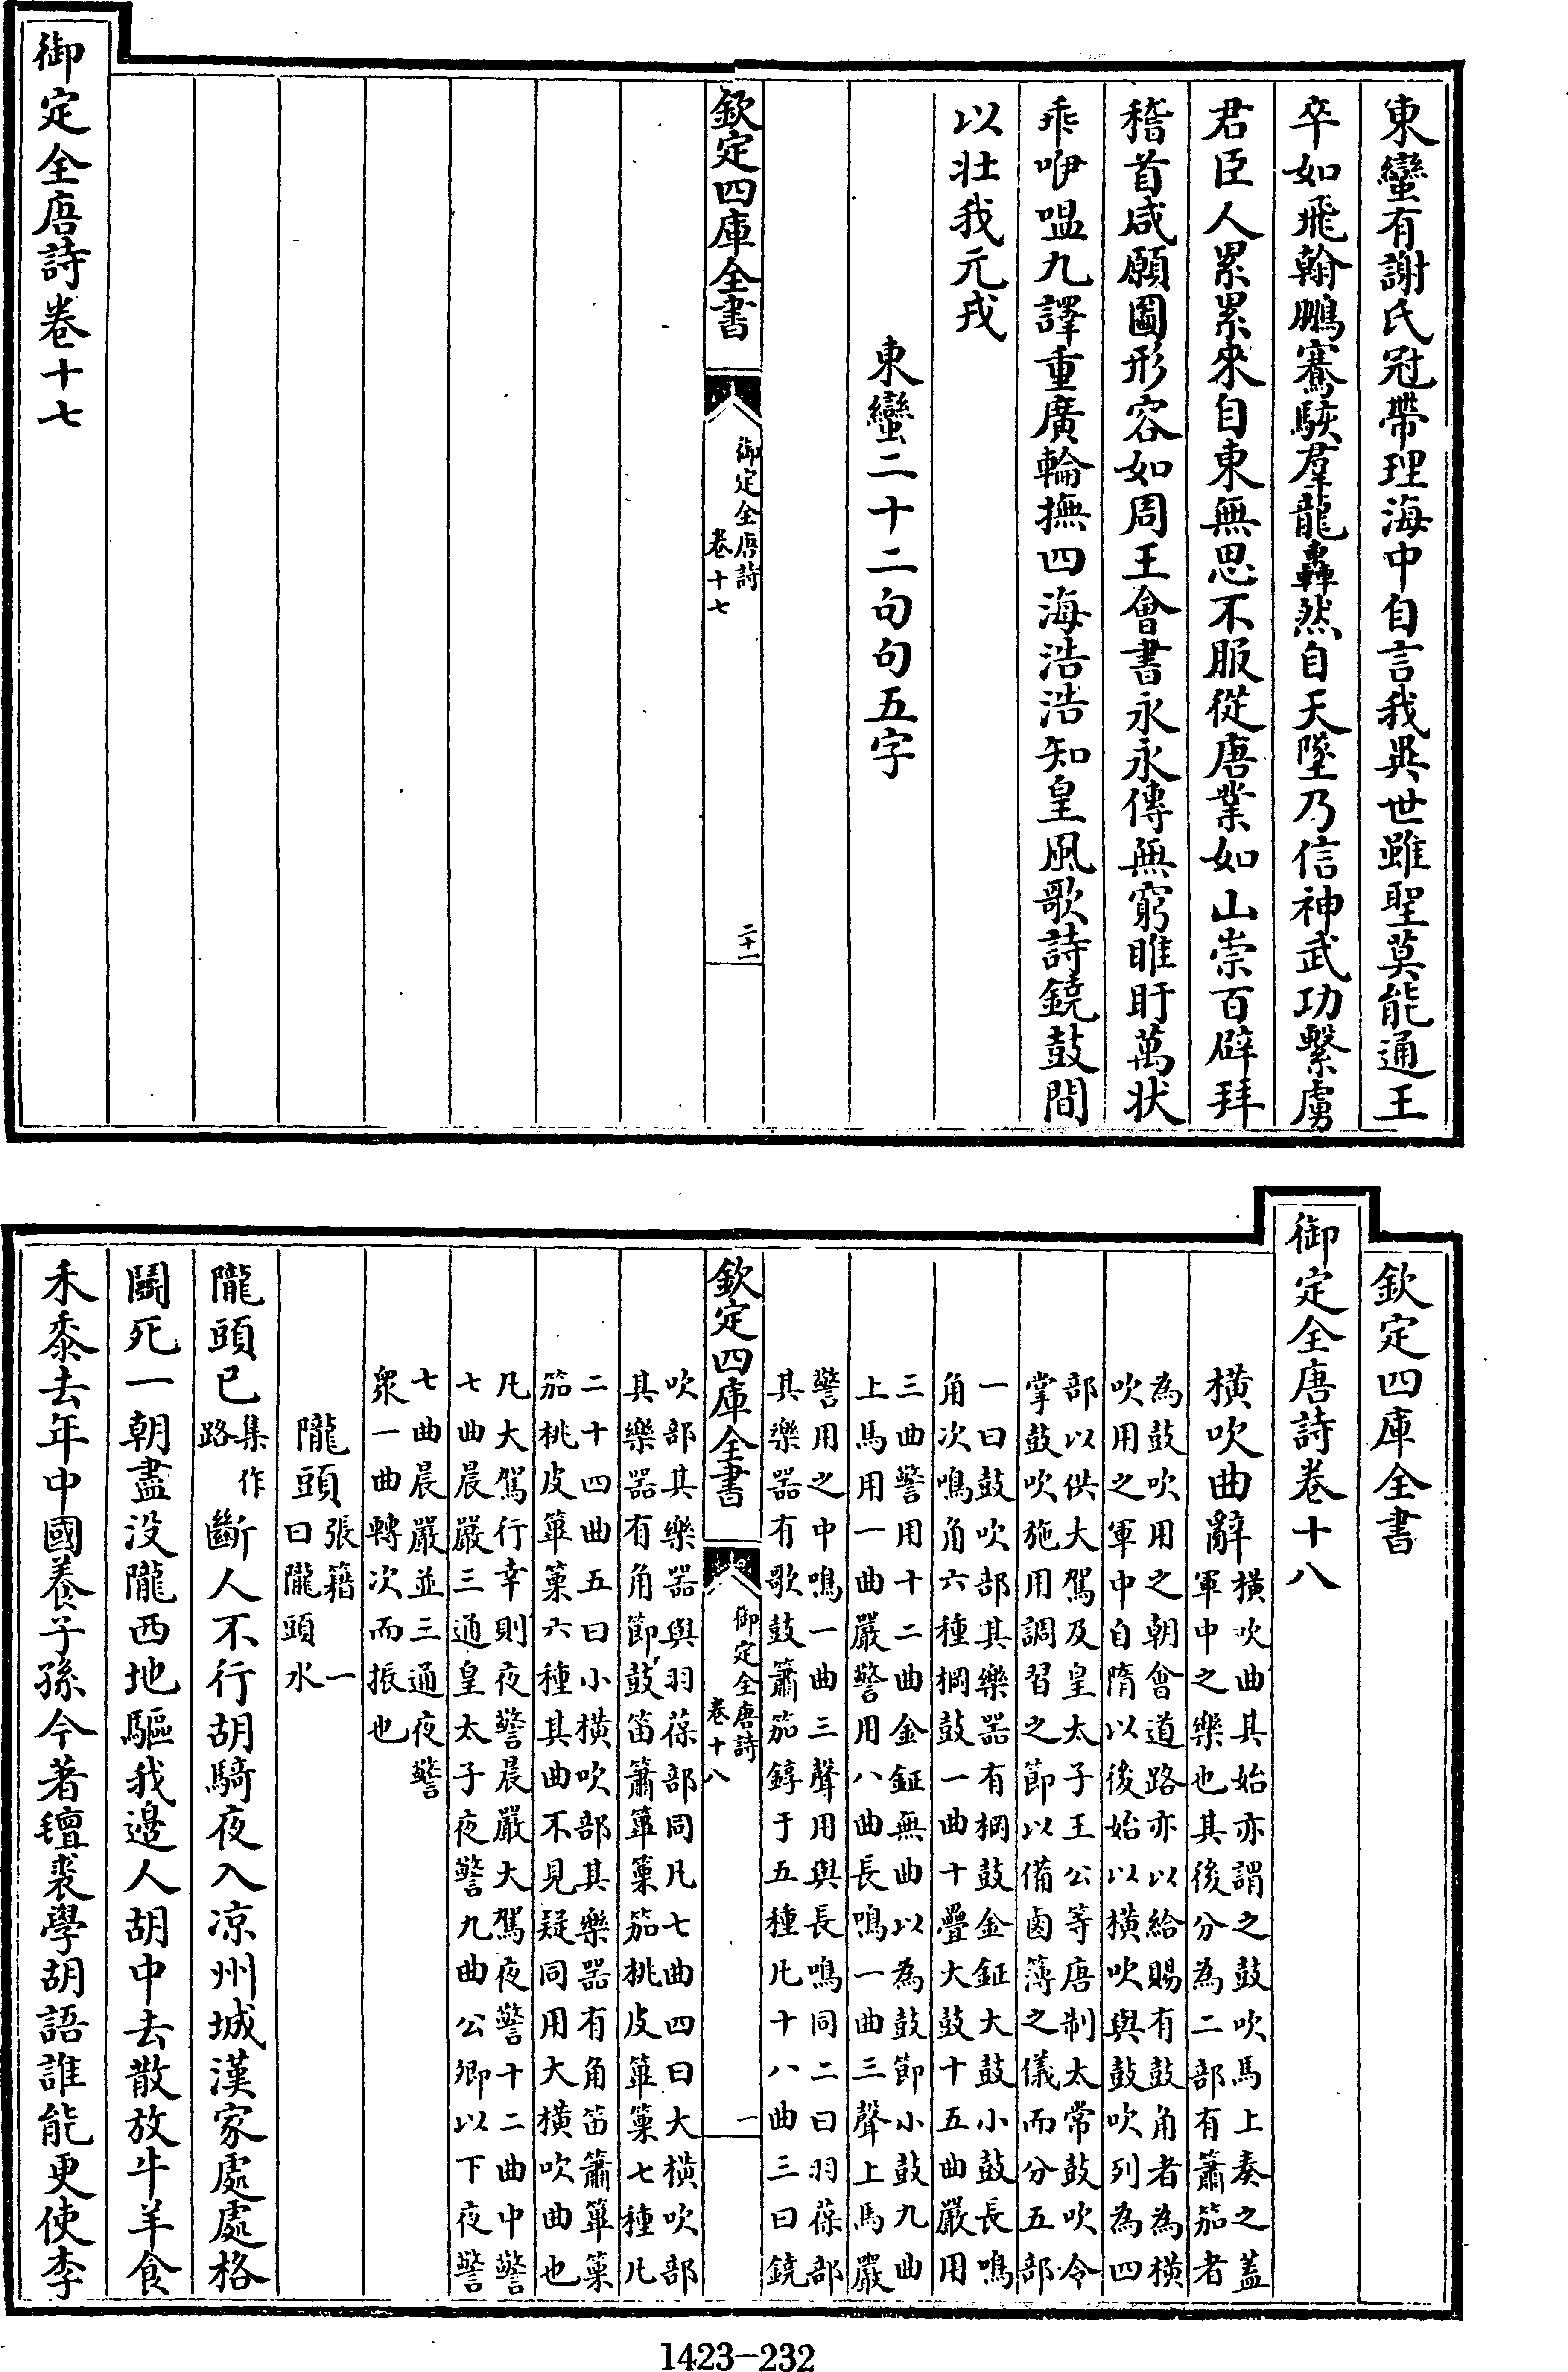 東蠻有謝氏冠帶理海中自言我異世雖聖莫能通王
卒如飛翰鵬騫駭羣龍轟然自天墜乃信神武功繫虜
君臣人累累來自東無思不服從唐業如山崇百辟拜
稽首咸願圖形容如周王會書永永傳無窮睢盱萬狀
乖咿嗢九譯重廣輪撫四海浩浩知皇風歌詩鐃鼓間
以壯我元戎
東蠻二十二句句五字
欽定四庫全書
御定全唐詩
卷十七
二十一
御定全唐詩卷十七
欽定四庫全書
御定全唐詩卷十八
橫吹曲辭
橫吹曲其始亦謂之鼓吹馬上奏之蓋
軍中之樂也其後分為二部有簫笳者
為鼓吹用之朝會道路亦以給賜有鼓角者為橫
吹用之軍中自隋以後始以橫吹與鼓吹列為四
部以供大駕及皇太子王公等唐制太常鼓吹令
掌鼓吹施用調習之節以備鹵簿之儀而分五部
一曰鼓吹部其樂器有棡鼓金鉦大鼓小鼓長鳴
角次鳴角六種棡鼓一曲十疊大鼓十五曲嚴用
三曲警用十二曲金鉦無曲以為鼓節小鼓九曲
上馬用一曲嚴警用八曲長鳴一曲三聲上馬嚴
警用之中鳴一曲三聲用與長鳴同二曰羽葆部
其樂器有歌鼓簫笳錞于五種凡十八曲三曰鐃
欽定四庫全書
御定全唐詩
卷十八
一
吹部其樂器與羽葆部同凡七曲四曰大橫吹部
其樂器有角節鼓笛簫篳篥笳桃皮篳篥七種凡
二十四曲五曰小橫吹部其樂器有角笛簫篳篥
笳桃皮篳篥六種其曲不見疑同用大橫吹曲也
凡大駕行幸則夜警晨嚴大駕夜警十二曲中警
七曲晨嚴三通皇太子夜警九曲公卿以下夜警
七曲晨嚴並三通夜警
衆一曲轉次而振也
隴頭
張籍　一
曰隴頭水
隴頭已集作路斷人不行胡騎夜入涼州城漢家處處格
鬭死一朝盡沒隴西地驅我邊人胡中去散放牛羊食
禾黍去年中國養子孫今著氊裘學胡語誰能更使李
1423-232